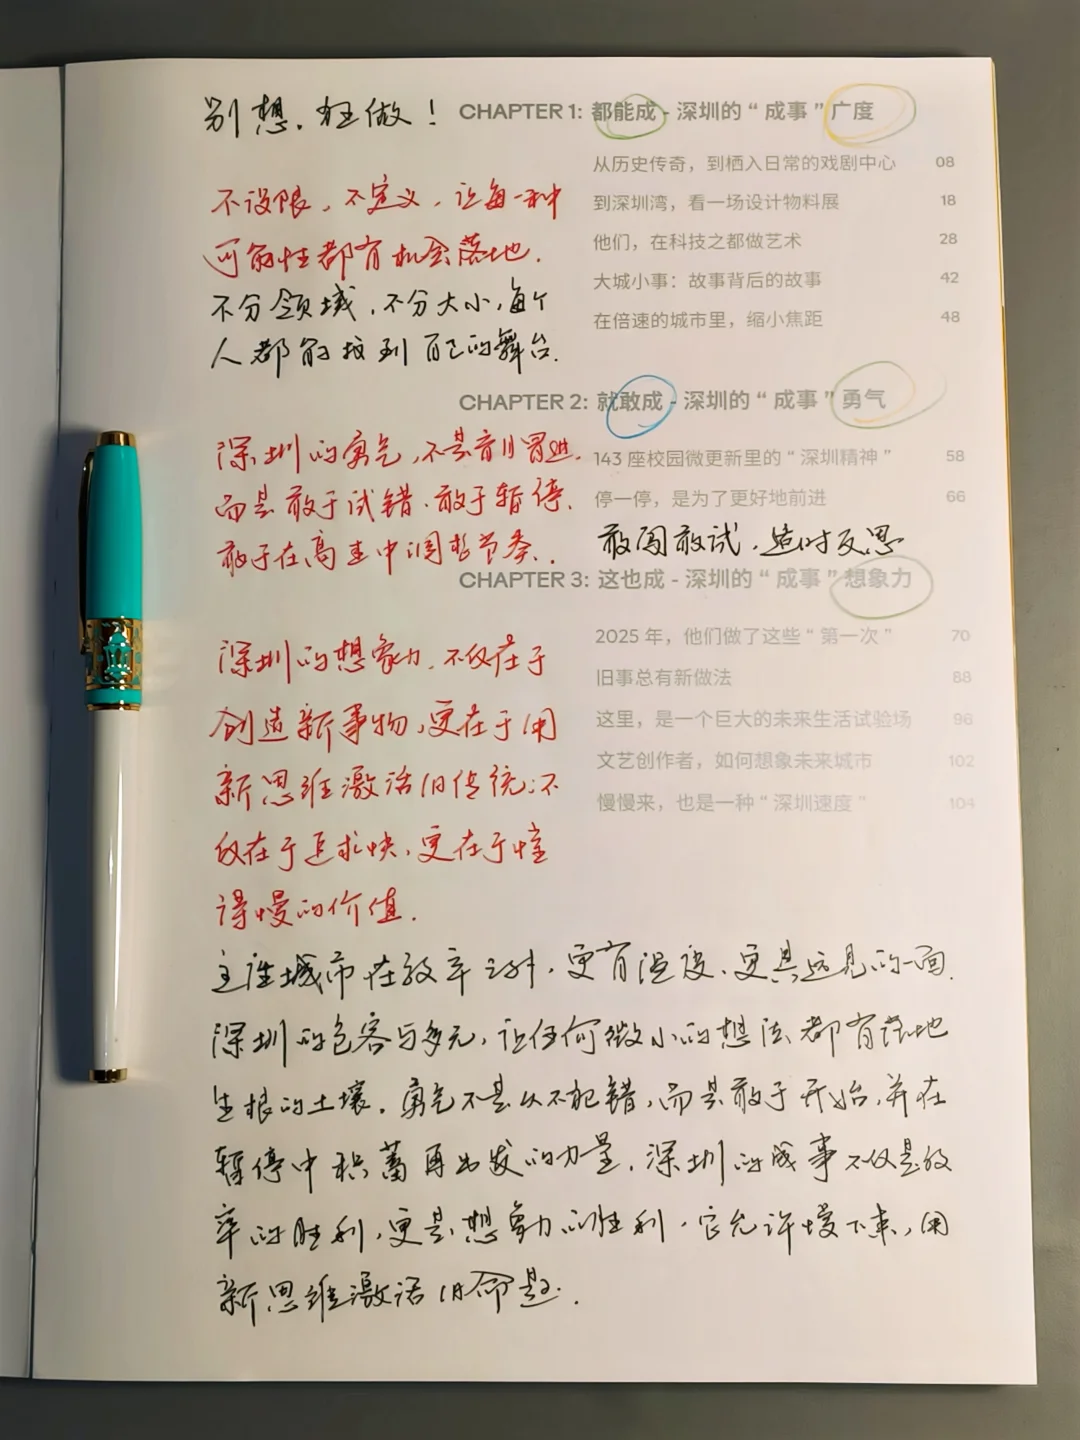 别想.狂做！
CHAPTER 1: 都能成 - 深圳的“成事”广度
从历史传奇，到栖入日常的戏剧中心 08
到深圳湾，看一场设计物料展 18
他们，在科技之都做艺术 28
大城小事：故事背后的故事 42
在倍速的城市里，缩小焦距 48
不设限，不定义，让每一种
可能性都有机会落地.
不分领域，不分大小，每个
人都能找到自己的舞台.
CHAPTER 2: 就敢成 - 深圳的“成事”勇气
143 座校园微更新里的“深圳精神” 58
停一停，是为了更好地前进 66
敢闯敢试，适时反思
深圳的勇气，不是盲目冒进.
而是敢于试错.敢于暂停.
敢于在高速中调整节奏.
CHAPTER 3: 这也成 - 深圳的“成事”想象力
2025 年，他们做了这些“第一次” 70
旧事总有新做法 88
这里，是一个巨大的未来生活试验场 96
文艺创作者，如何想象未来城市 102
慢慢来，也是一种“深圳速度” 104
深圳的想象力，不仅在于
创造新事物，更在于用
新思维激活旧传统；不
仅在于追求快，更在于懂
得慢的价值.
这座城市在效率之外，更有温度、更具远见的一面.
深圳的包容与多元，让任何微小的想法都有落地
生根的土壤。勇气不是从不犯错，而是敢于开始，并在
暂停中积蓄再出发的力量，深圳的成事不仅是效
率的胜利，更是想象力的胜利，它允许慢下来，用
新思维激活旧命题.